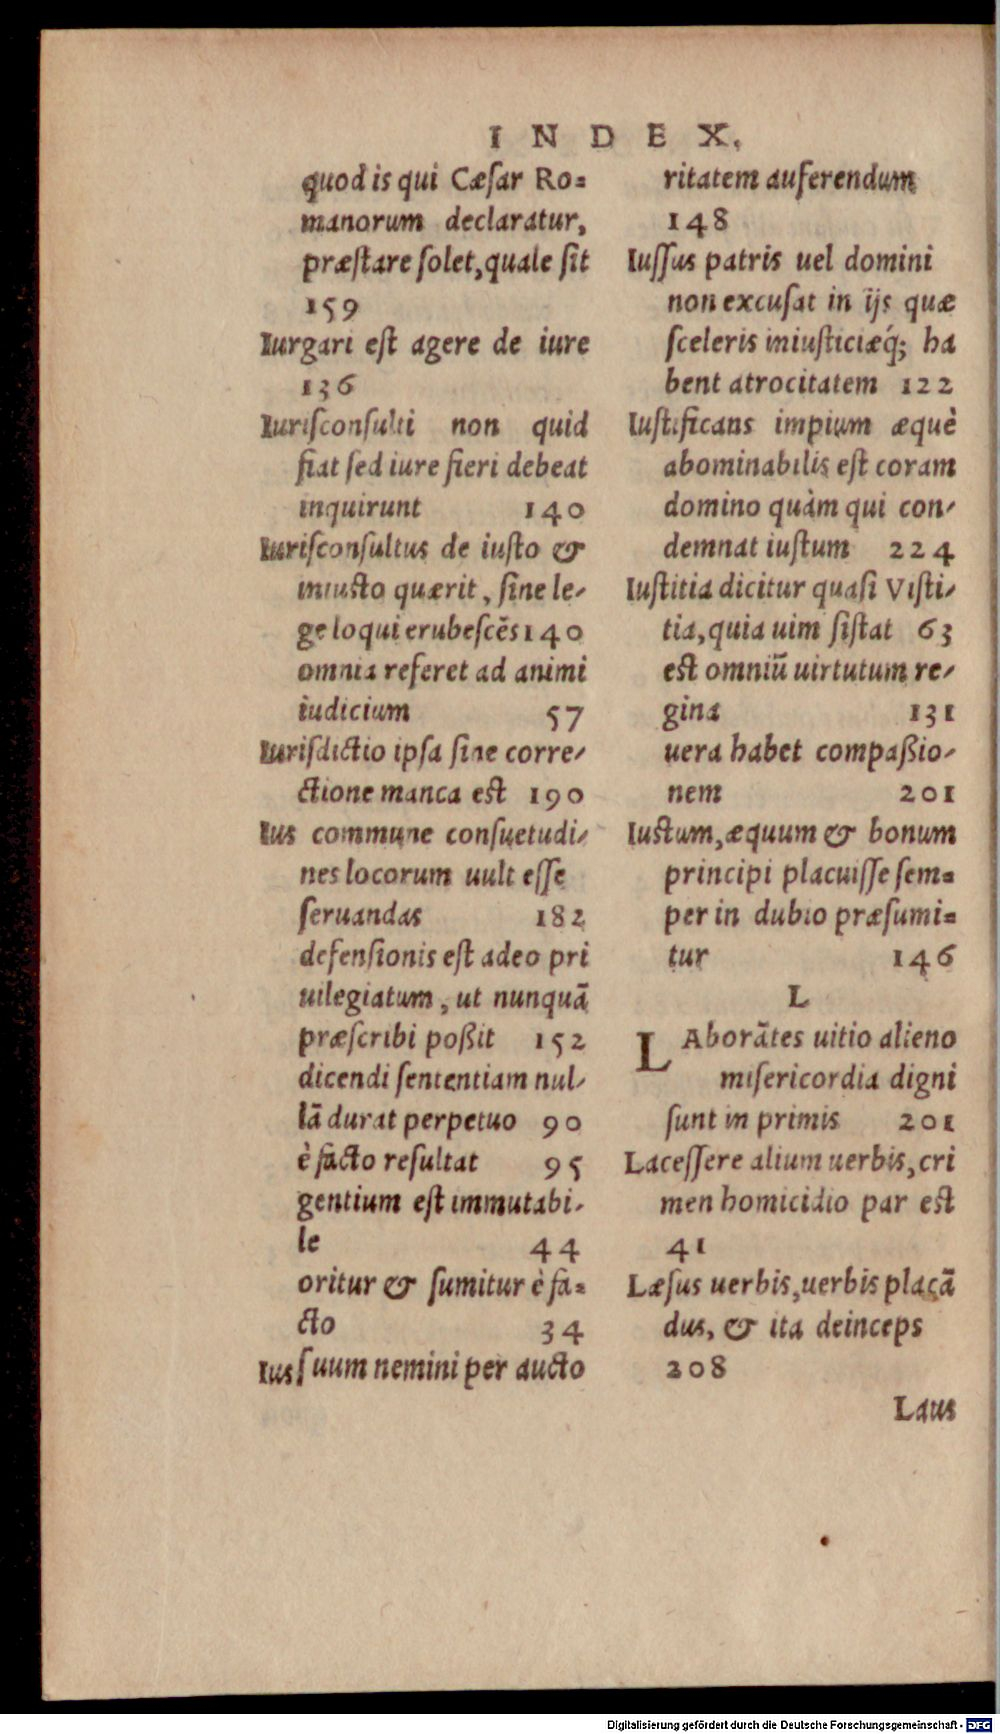 INDEX.
quod is qui Cæſar Ro=
manorum declaratur,
præſtare ſolet, quale ſit
159
Iurgari eſt agere de iure
136
Iuriſconſulti non quid
fiat ſed iure fieri debeat
inquirunt 140
Iuriſconſultus de iuſto &
iniuſto quærit, ſine le-
ge loqui erubeſcẽs 140
omnia referet ad animi
iudicium 57
Iuriſdictio ipſa ſine corre-
ctione manca eſt 190
Ius commune conſuetudi-
nes locorum uult eſſe
ſeruandas 182
defenſionis eſt adeo pri
uilegiatum, ut nunquã
præſcribi poßit 152
dicendi ſententiam nul-
lã durat perpetuo 90
è facto reſultat 95
gentium eſt immutabi-
le 44
oritur & ſumitur è fa=
cto 34
Ius ſuum nemini per aucto
ritatem auferendum
148
Iuſſus patris uel domini
non excuſat in ijs quæ
ſceleris iniuſticiæq́; ha
bent atrocitatem 122
Iuſtificans impium æquè
abominabilis eſt coram
domino quàm qui con-
demnat iuſtum 224
Iuſtitia dicitur quaſi Viſti-
tia, quia uim ſiſtat 63
eſt omniũ uirtutum re-
gina 131
uera habet compaßio-
nem 201
Iuſtum, æquum & bonum
principi placuiſſe ſem=
per in dubio præſumi=
tur 146
L
LAborãtes uitio alieno
miſericordia digni
ſunt in primis 201
Laceſſere alium uerbis, cri
men homicidio par eſt
41
Læſus uerbis, uerbis placã
dus, & ita deinceps
208
Laus
Digitalisierung gefördert durch die Deutsche Forschungsgemeinschaft - DFG